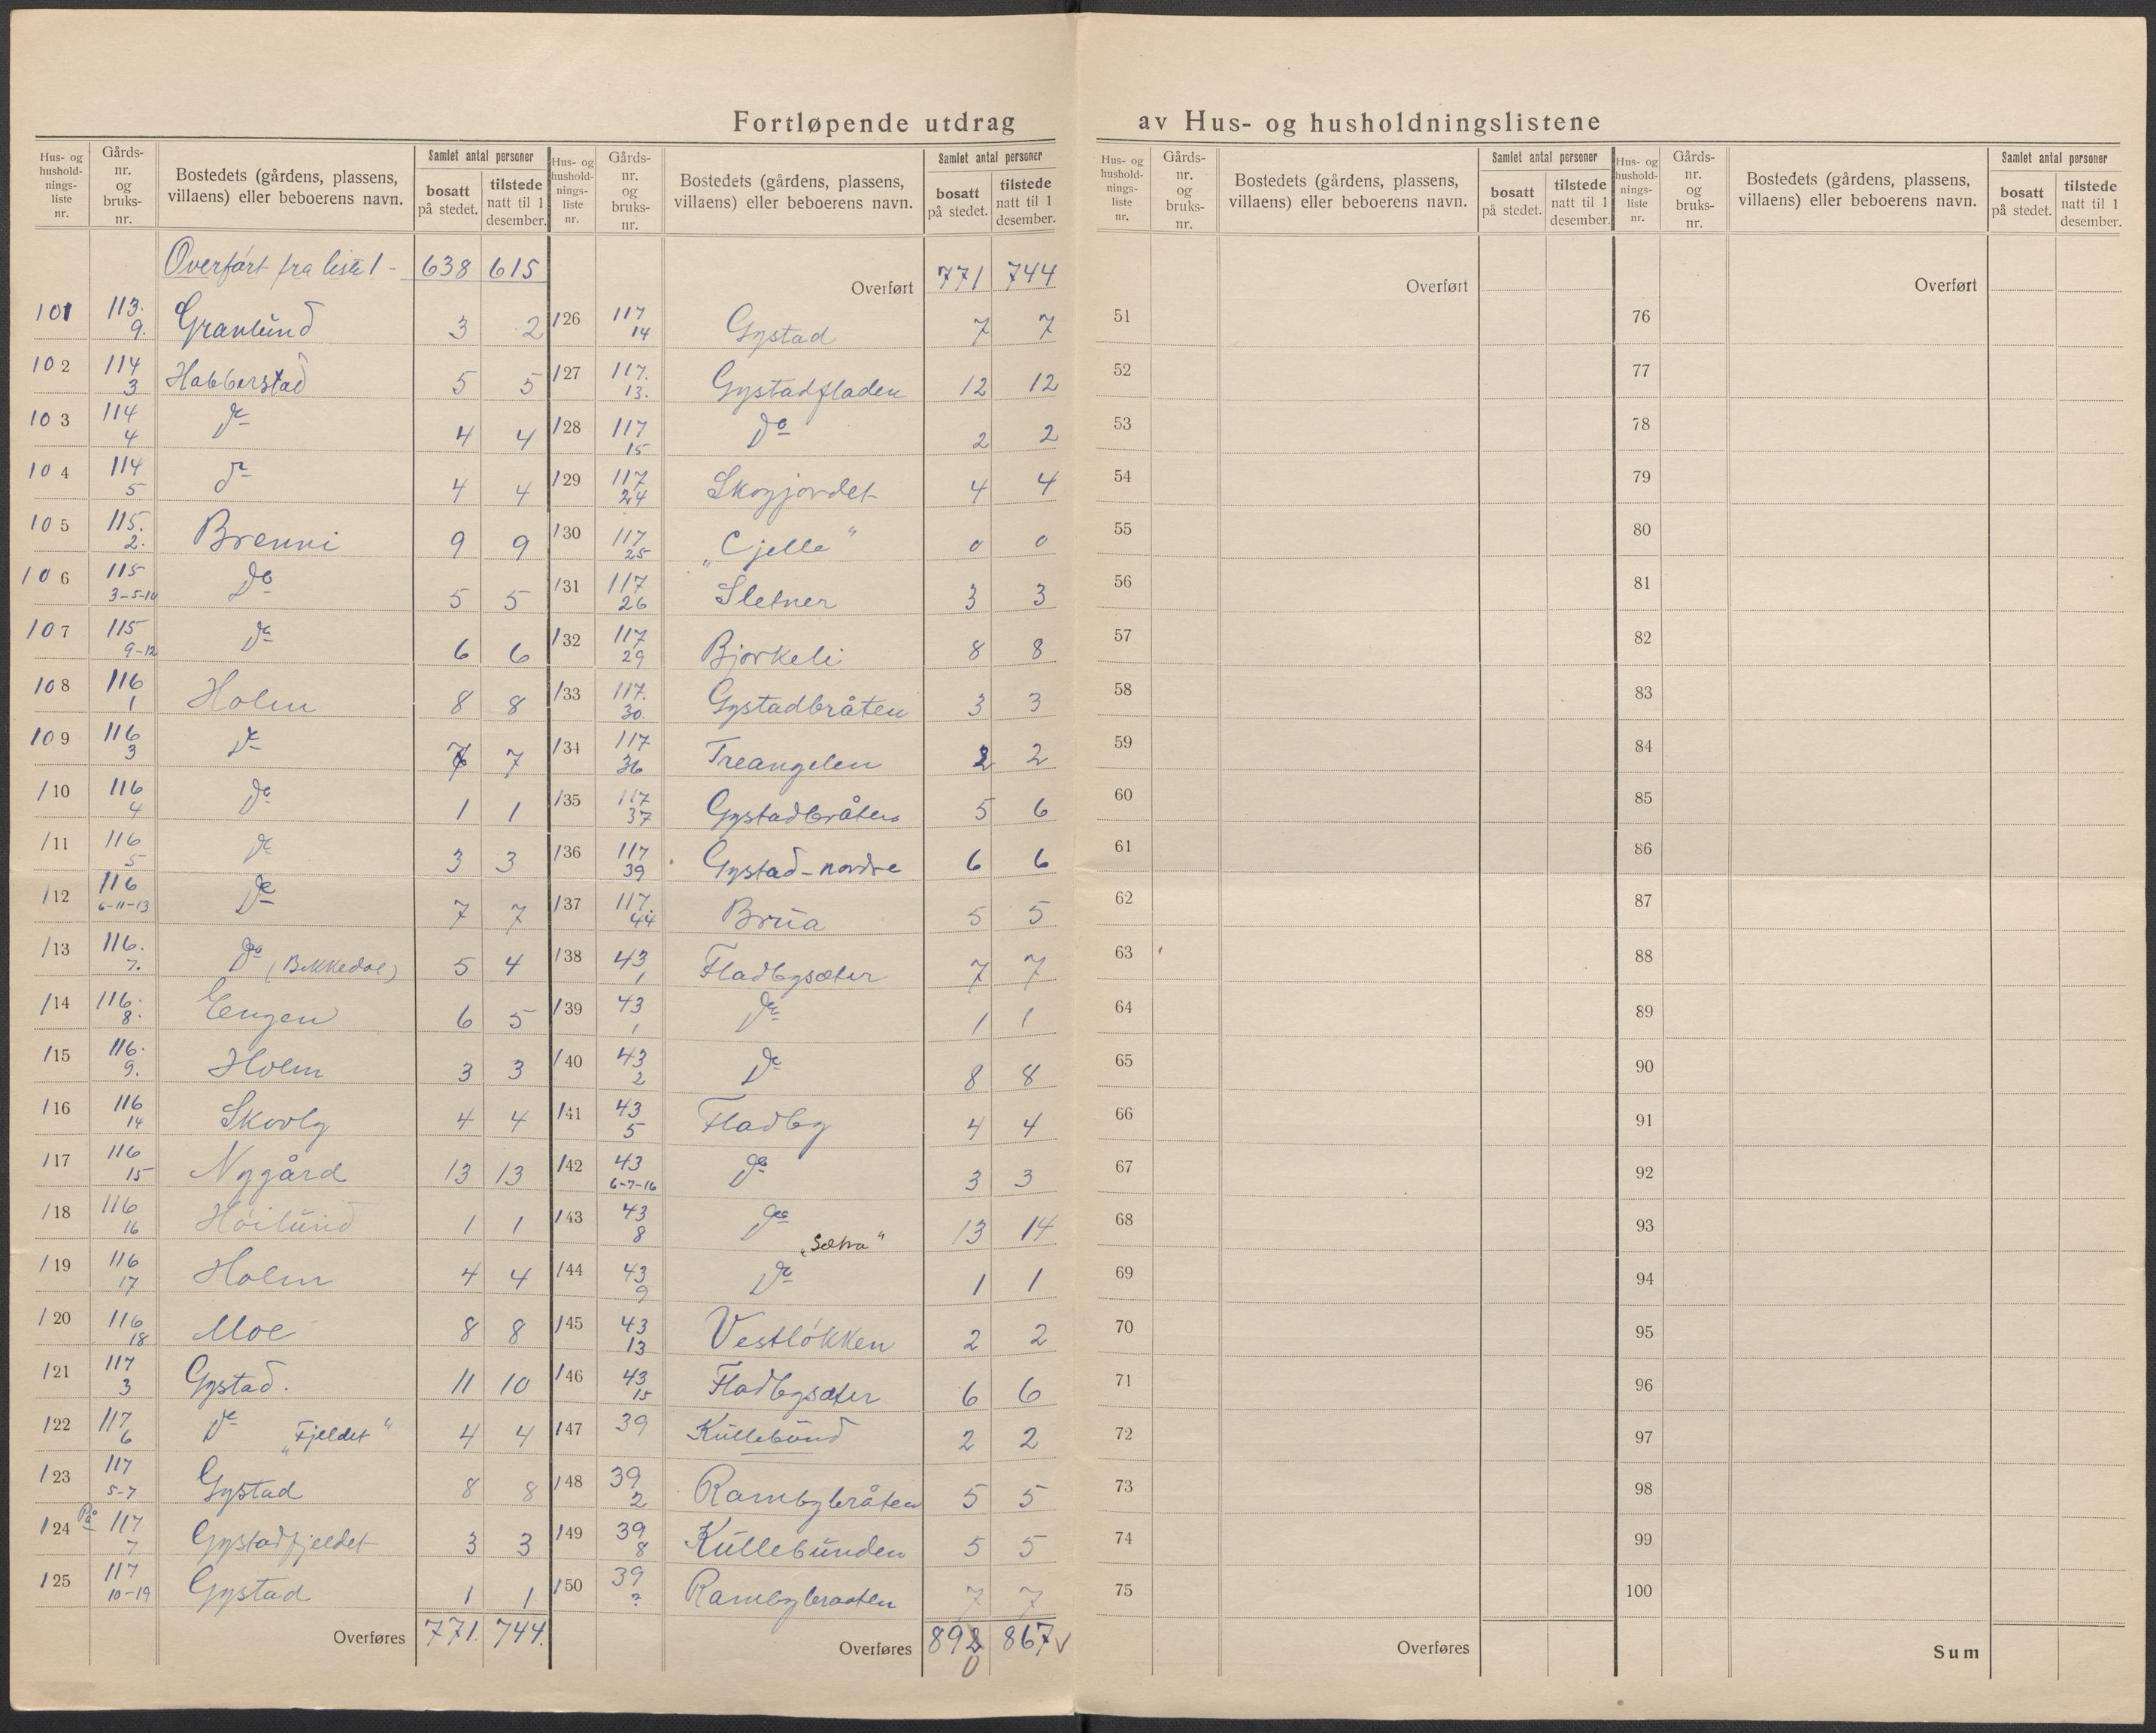 Fortløpende utdrag av Hus- og husholdningslistene
Hus- og hushold-nings-liste nr. | Gårds-nr. og bruks-nr. | Bostedets (gårdens, plassens, villaens) eller beboerens navn. | Samlet antal personer | bosatt på stedet. | tilstede natt til 1 desember.
Overført fra liste 1 - 638 615
101 113. 9. Granlund 3 2
102 114 3 Habberstad 5 5
103 114 4 Do 4 4
104 114 5 Do 4 4
105 115. 2. Brenni 9 9
106 115 3-5-10 Do 5 5
107 115 9-12 Do 6 6
108 116 1 Holm 8 8
109 116 3 Do 7 7
110 116 4 Do 1 1
111 116 5 Do 3 3
112 116 6-11-13 Do 7 7
113 116. 7. Do (Bekkedal) 5 4
114 116. 8. Engen 6 5
115 116. 9. Holm 3 3
116 116 14 Skovly 4 4
117 116 15 Nygård 13 13
118 116 16 Høilund 1 1
119 116 17 Holm 4 4
120 116 18 Moe 8 8
121 117 3 Gystad. 11 10
122 117 6 Do „Fjeldet“ 4 4
123 117 5-7 Gystad 8 8
124 På 117 7 Gystadfjeldet 3 3
125 117 10-19 Gystad 1 1
Overføres 771. 744.
Hus- og hushold-nings-liste nr. | Gårds-nr. og bruks-nr. | Bostedets (gårdens, plassens, villaens) eller beboerens navn. | Samlet antal personer | bosatt på stedet. | tilstede natt til 1 desember.
Overført 771 744
126 117 14 Gystad 7 7
127 117. 13. Gystadfladen 12 12
128 117 15 Do 2 2
129 117 24 Skogjordet 4 4
130 117 25 „Cjelle“ 0 0
131 117 26 Sletner 3 3
132 117 29 Bjørkeli 8 8
133 117. 30. Gystadbråten 3 3
134 117 36 Treangelen 2 2
135 117 37 Gystadbråten 5 6
136 117 39 Gystad-nordre 6 6
137 117. 44 Brua 5 5
138 43 1 Fladbysæter 7 7
139 43 1 Do 1 1
140 43 2 Do 8 8
141 43 5 Fladby 4 4
142 43 6-7-16 Do 3 3
143 43 8 Do 13 14
144 43 9 Do „Sætra“ 1 1
145 43 13 Vestløkken 2 2
146 43 15 Fladbysæter 6 6
147 39 Kullebund 2 2
148 39 2 Rambybråten 5 5
149 39 8 Kullebunden 5 5
150 39 ? Rambybraaten 7 7
Overføres 892 0 867 ✓
Hus- og hushold-nings-liste nr. | Gårds-nr. og bruks-nr. | Bostedets (gårdens, plassens, villaens) eller beboerens navn. | Samlet antal personer | bosatt på stedet. | tilstede natt til 1 desember.
Overført
51
52
53
54
55
56
57
58
59
60
61
62
63
64
65
66
67
68
69
70
71
72
73
74
75
Overføres
Hus- og hushold-nings-liste nr. | Gårds-nr. og bruks-nr. | Bostedets (gårdens, plassens, villaens) eller beboerens navn. | Samlet antal personer | bosatt på stedet. | tilstede natt til 1 desember.
Overført
76
77
78
79
80
81
82
83
84
85
86
87
88
89
90
91
92
93
94
95
96
97
98
99
100
Sum